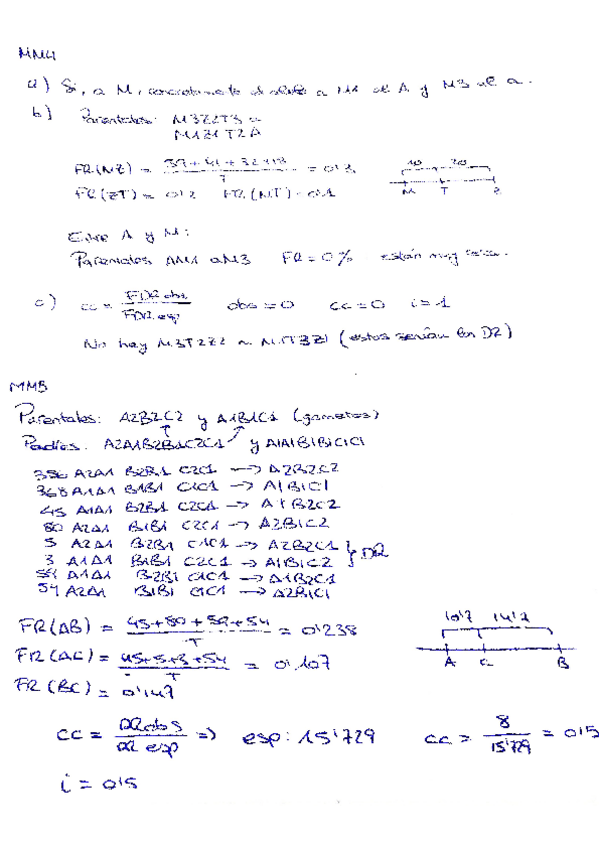 MM4
a) Si, a M, concretamente el alelo a M1 al A y M3 al a.
b) Parentales: M3Z2T3 a
M1Z1T2A
FR(MZ) = 39+41+32+18 / T = 0'3
10 20
FR(ZT) = 0'2 FR(MT) = 0'1
M T Z
Entre A y M:
Parentales AM1 aM3 FR = 0% están muy cerca.
c) cc = FDR obs / FDR esp obs = 0 cc = 0 i = 1
No hay M3T2Z2 a M1T3Z1 (estos serían los DR)
MM5
Parentales: A2B2C2 y A1B1C1 (gametos)
Padres: A2A1B2B1C2C1 y A1A1B1B1C1C1
A2A1 B2B1 C2C1 → A2B2C2
368 A1A1 B1B1 C1C1 → A1B1C1
45 A1A1 B2B1 C2C1 → A1B2C2
80 A2A1 B1B1 C2C1 → A2B1C2
5 A2A1 B2B1 C1C1 → A2B2C1 } DR
3 A1A1 B1B1 C2C1 → A1B1C2
A1A1 B2B1 C1C1 → A1B2C1
54 A2A1 B1B1 C1C1 → A2B1C1
FR(AB) = 45+80+59+54 / T = 0'238
10'7 14'7
FR(AC) = 45+5+3+54 / T = 0'107
A C B
FR(BC) = 0'147
cc = DR obs / DR esp => esp: 15'729 cc = 8 / 15'729 = 0'5
i = 0'5